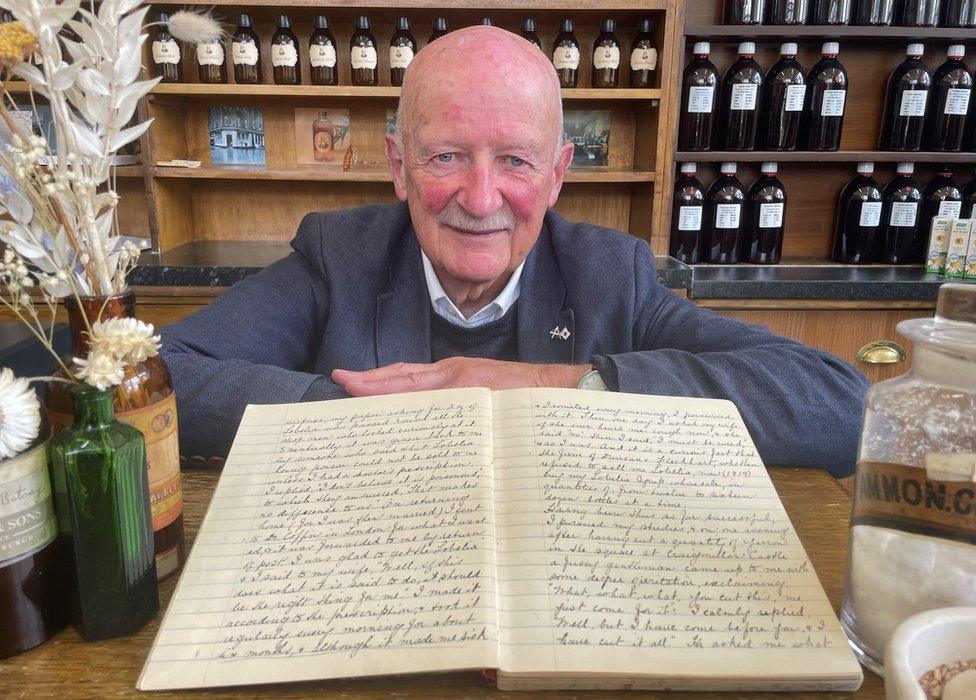 suppose, my paper asking for 2 oz of
Lobelia was passed round all the
shop men who looked curiously at it.
Eventually it was given back to me
by someone who said that Lobelia
being poison could not be sold to me
unless I had a doctor's prescription.
I replied "I don't believe it is poisonous,"
to which they answered, "That makes
no difference to us." On returning
home (for I was then married) I sent
to Dr. Coffin in London for what I want-
ed, & it was forwarded to me by return
of post. I was glad to get the Lobelia
& I said to my wife, "Well, if this
does what it is said to do, it should
be the right thing for me." I made it
according to the prescription, & took it
regularly every morning for about
six months, & although it made me sick
& I vomited every morning, I persevered
with it. Then one day I asked my wife
if she ever heard me cough now, & she
said "No." Then I said, "I must be cured"
& so I was. And it is a curious fact that
the firm of Duncan Flockhart, who then
refused to sell me Lobelia, now (1919)
buy my Lobelia Syrup wholesale, in
quantities of from twelve to sixteen
dozen bottles at a time.
Having been thus so far successful,
I pursued my studies, & on one evening
after having cut a quantity of Yarrow
in the square at Craigmillar Castle
a fussy gentleman came up to me with
some degree of irritation, exclaiming,
"What, what, what, you cut this, & me
just come for it!" I calmly replied,
"Well, but I have come before you, & I
have cut it all." He asked me what
Botany
& SONS
MARKET
AMMON.C